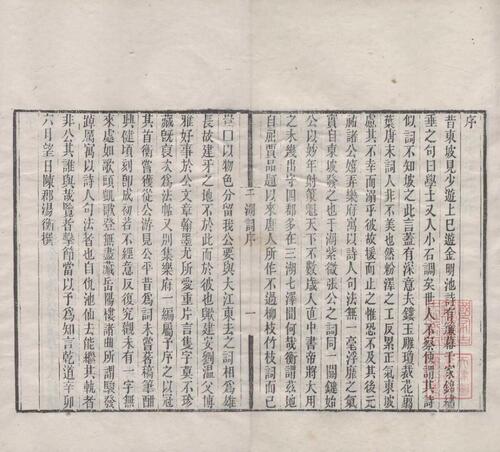 序
昔東坡見少遊上巳遊金明池詩有簾幕千家錦繡
垂之句曰學士又入小石調矣世人不察便謂其詩
似詞不知坡之此言蓋有深意夫鏤玉雕瓊裁花剪
葉唐末詞人非不美也然粉澤之工反累正氣東坡
慮其不幸而溺乎彼故援而止之惟恐不及其後元
祐諸公嬉弄樂府寓以詩人句法無一毫浮靡之氣
實自東坡發之也于湖紫微張公之詞同一關鍵始
公以妙年射策魁天下不數歲入直中書帝將大用
之未幾出守四郡多在三湖七澤間何哉衡謂茲地
自屈賈品題以來唐人所作不過柳枝竹枝詞而已
于湖詞序
一
豈以物色分留我公要與大江東去之詞相為雄
長故建牙之地不於此而於彼也歟建安劉溫父博
雅好事於公文章翰墨尤所愛重片言隻字莫不珍
藏既裒次為法帖又別集樂府一編屬予序之以冠
其首衡嘗獲從公游見公平昔為詞未嘗著稿筆酣
興健頃刻即成初若不經意反復究觀未有一字無
來處如歌頭凱歌登無盡藏岳陽樓諸曲所謂駿發
踔厲寓以詩人句法者也自仇池仙去能繼其軌者
非公其誰與哉覽者擊節當以予為知言乾道辛卯
六月望日陳郡湯衡撰